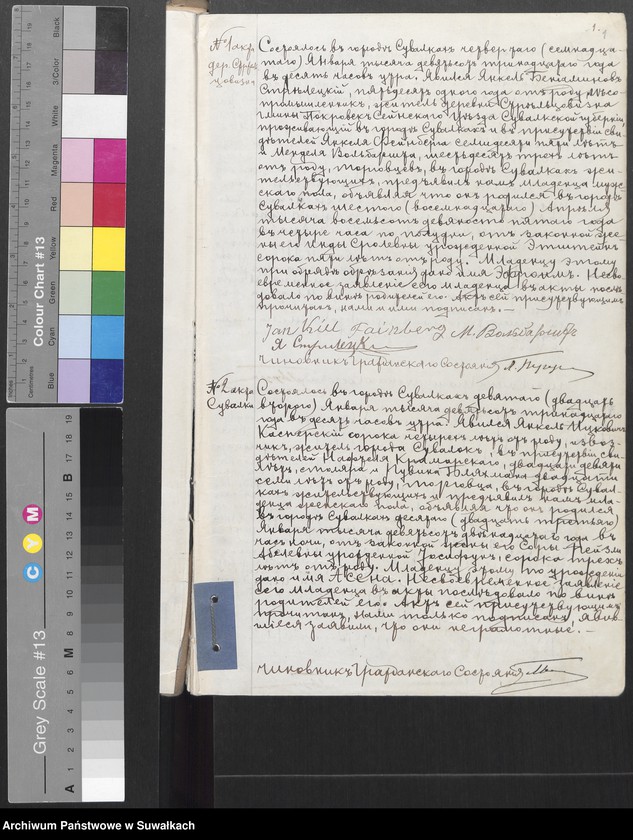 1.
1
№1 акр.
дер.
Состоялось въ городѣ Сувалкахъ четвертаго (семнадца-
таго) Января тысяча девятьсотъ тринадцатаго года
въ десять часовъ утра. Явился Янкель Беніаминовъ
Стрѣлецкій, пятьдесятъ одного года отъ роду,
промышленникъ, житель деревни
гмины Покровскъ Сейнскаго уѣзда Сувалкской губерніи,
проживающій въ городѣ Сувалкахъ и въ присутствіи сви-
дѣтелей Янкеля Файнберга семидесяти пяти лѣтъ
и Менделя Вольбаршта, шестьдесятъ трехъ лѣтъ
отъ роду, торговцевъ, въ городѣ Сувалкахъ жи-
тельствующихъ, предъявилъ намъ младенца муж-
скаго пола, объявляя что онъ родился въ городѣ
Сувалкахъ шестого (восемнадцатаго) Апрѣля
тысяча восемьсотъ девяносто пятаго года
въ четыре часа по полудни, отъ законной же-
ны его Сролевны урожденной Эпштейнъ
сорока пяти лѣтъ отъ роду. Младенцу этому
при обрядѣ обрѣзанія дано имя Эфроимъ. Несво-
евременное заявленіе сего младенца въ акты послѣ-
довало по винѣ родителей его. Актъ сей присутствующимъ
прочитанъ, нами и ими подписанъ. —
Jankiel Fainberg М. Вольбарштъ
Я Стрилецки
Чиновникъ Гражданскаго Состоянія
№2 акр.
Сувалки
Состоялось въ городѣ Сувалкахъ девятаго (двадцать
второго) Января тысяча девятьсотъ тринадцатаго
года въ десять часовъ утра. Явился Янкель Ицковичъ
Касперскій сорока четырехъ лѣтъ отъ роду, извоз-
чикъ, житель города Сувалокъ, въ присутствіи сви-
дѣтелей Крамарскаго, двадцати девяти
лѣтъ, столяра и Рувина Бляхмана двадцати
семи лѣтъ отъ роду, торговца, въ городѣ Сувал-
кахъ жительствующихъ и предъявилъ намъ мла-
денца женскаго пола, объявляя что онъ родился
въ городѣ Сувалкахъ десятаго (двадцать третьяго)
Января тысяча девятьсотъ двѣнадцатаго года въ
часъ ночи, отъ законной жены его Соры Рейзли
урожденной сорока трехъ
лѣтъ отъ роду. Младенцу этому по урожденіи
дано имя Асена. Несвоевременное заявленіе
сего младенца въ акты послѣдовало по винѣ
родителей его. Актъ сей присутствующимъ
прочитанъ, нами только подписанъ, явив-
шіеся заявили, что они неграмотные. —
Чиновникъ Гражданскаго Состоянія
Colour Chart #13
Black
3/Color
White
Magenta
Red
Yellow
Green
Cyan
Blue
Inches
Centimetres
Grey Scale #13
C Y M
A 1 2 3 4 5 6 M 8 9 10 11 12 13 14 15 B 17 18 19
Archiwum Państwowe w Suwałkach